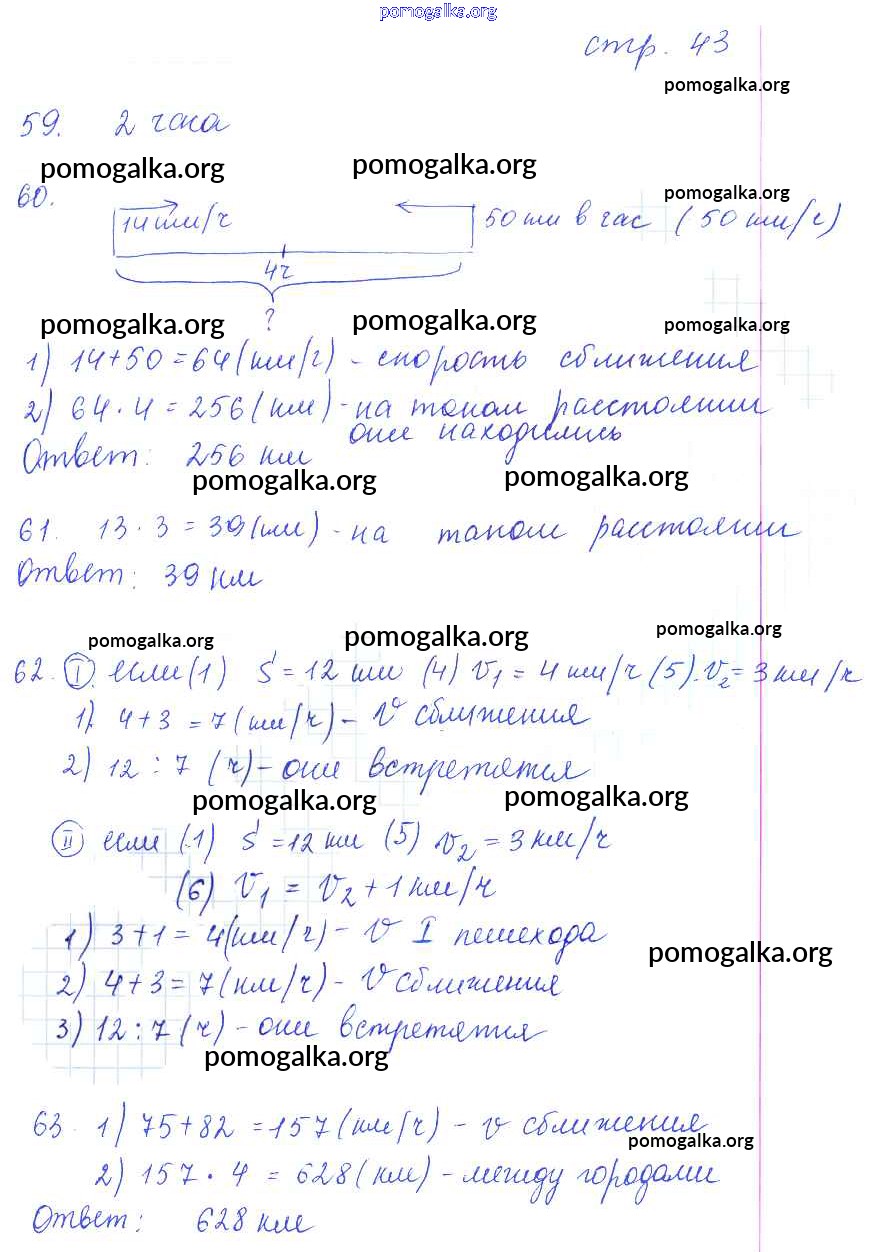 pomogalka.org
стр. 43
pomogalka.org
59. 2 часа
pomogalka.org pomogalka.org
60. pomogalka.org
14 км/ч 50 км в час (50 км/ч)
4ч
?
pomogalka.org pomogalka.org pomogalka.org
1) 14+50=64(км/ч) - скорость сближения
2) 64·4=256(км) - на таком расстоянии
они находились
Ответ: 256 км
pomogalka.org pomogalka.org
61. 13·3=39(км) - на таком расстоянии
Ответ: 39 км
pomogalka.org pomogalka.org pomogalka.org
62. (I). если (1) S=12 км (4) V₁=4 км/ч (5). V₂=3 км/ч
1). 4+3=7(км/ч) - V сближения
2) 12:7 (ч) - они встретятся
pomogalka.org pomogalka.org
(II) если (1) S=12 км (5) V₂=3 км/ч
(6) V₁=V₂+1 км/ч
1) 3+1=4(км/ч) - V I пешехода
pomogalka.org
2) 4+3=7(км/ч) - V сближения
3) 12:7(ч) - они встретятся
pomogalka.org
63. 1) 75+82=157(км/ч) - V сближения
pomogalka.org
2) 157·4=628(км) - между городами
Ответ: 628 км